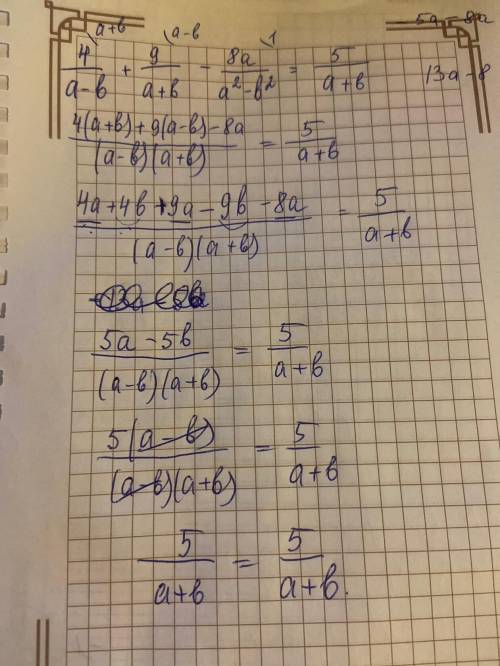 a+b a-b 1 5a-8a
4/(a-b) + 9/(a+b) - 8a/(a²-b²) = 5/(a+b) 13a-8
(4(a+b)+9(a-b)-8a)/((a-b)(a+b)) = 5/(a+b)
(4a+4b+9a-9b-8a)/((a-b)(a+b)) = 5/(a+b)
(5a-5b)/((a-b)(a+b)) = 5/(a+b)
5(a-b)/((a-b)(a+b)) = 5/(a+b)
5/(a+b) = 5/(a+b).